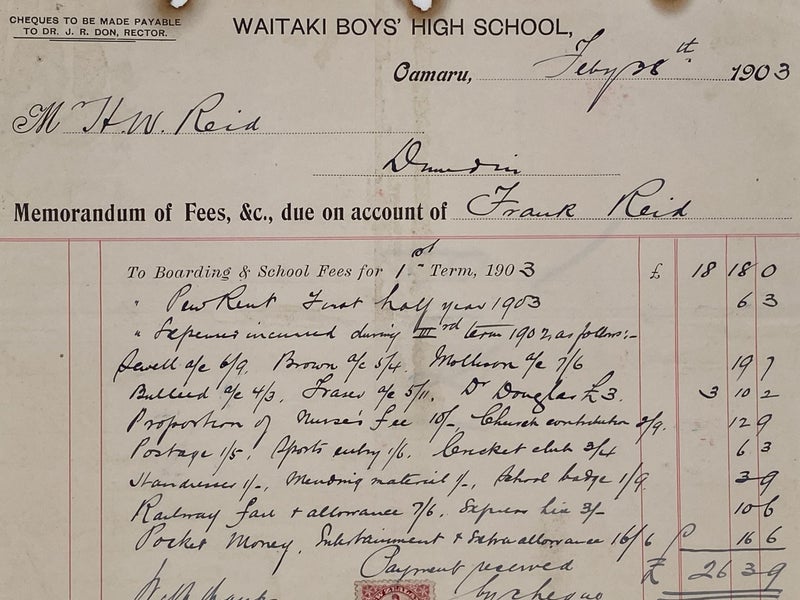 CHEQUES TO BE MADE PAYABLE
TO DR. J. R. DON, RECTOR.
WAITAKI BOYS' HIGH SCHOOL,
Oamaru, Feby 28th 1903
Mr H.W. Reid
Dunedin
Memorandum of Fees, &c., due on account of Frank Reid
To Boarding & School Fees for 1st Term, 1903 £ 18 18 0
" Pew Rent First half year 1903 6 3
" Expenses incurred during IIIrd term 1902 as follows:-
Jewell a/c 6/9. Brown a/c 5/4. Mollison a/c 7/6 19 7
Bulleid a/c 4/3. Fraser a/c 5/11. Dr Douglas £3. 3 10 2
Proportion of Nurse's fee 10/-, Church contribution 2/9. 12 9
Postage 1/5, Sports entry 1/6, Cricket club 3/4 6 3
Hairdresser 1/-, Mending material 1/-, School badge 1/9. 3 9
Railway fare & allowance 7/6, Express hire 3/- 10 6
Pocket Money, Entertainment & Extra allowance 16/6 16 6
Payment received £ 26 3 9
With thanks by cheque